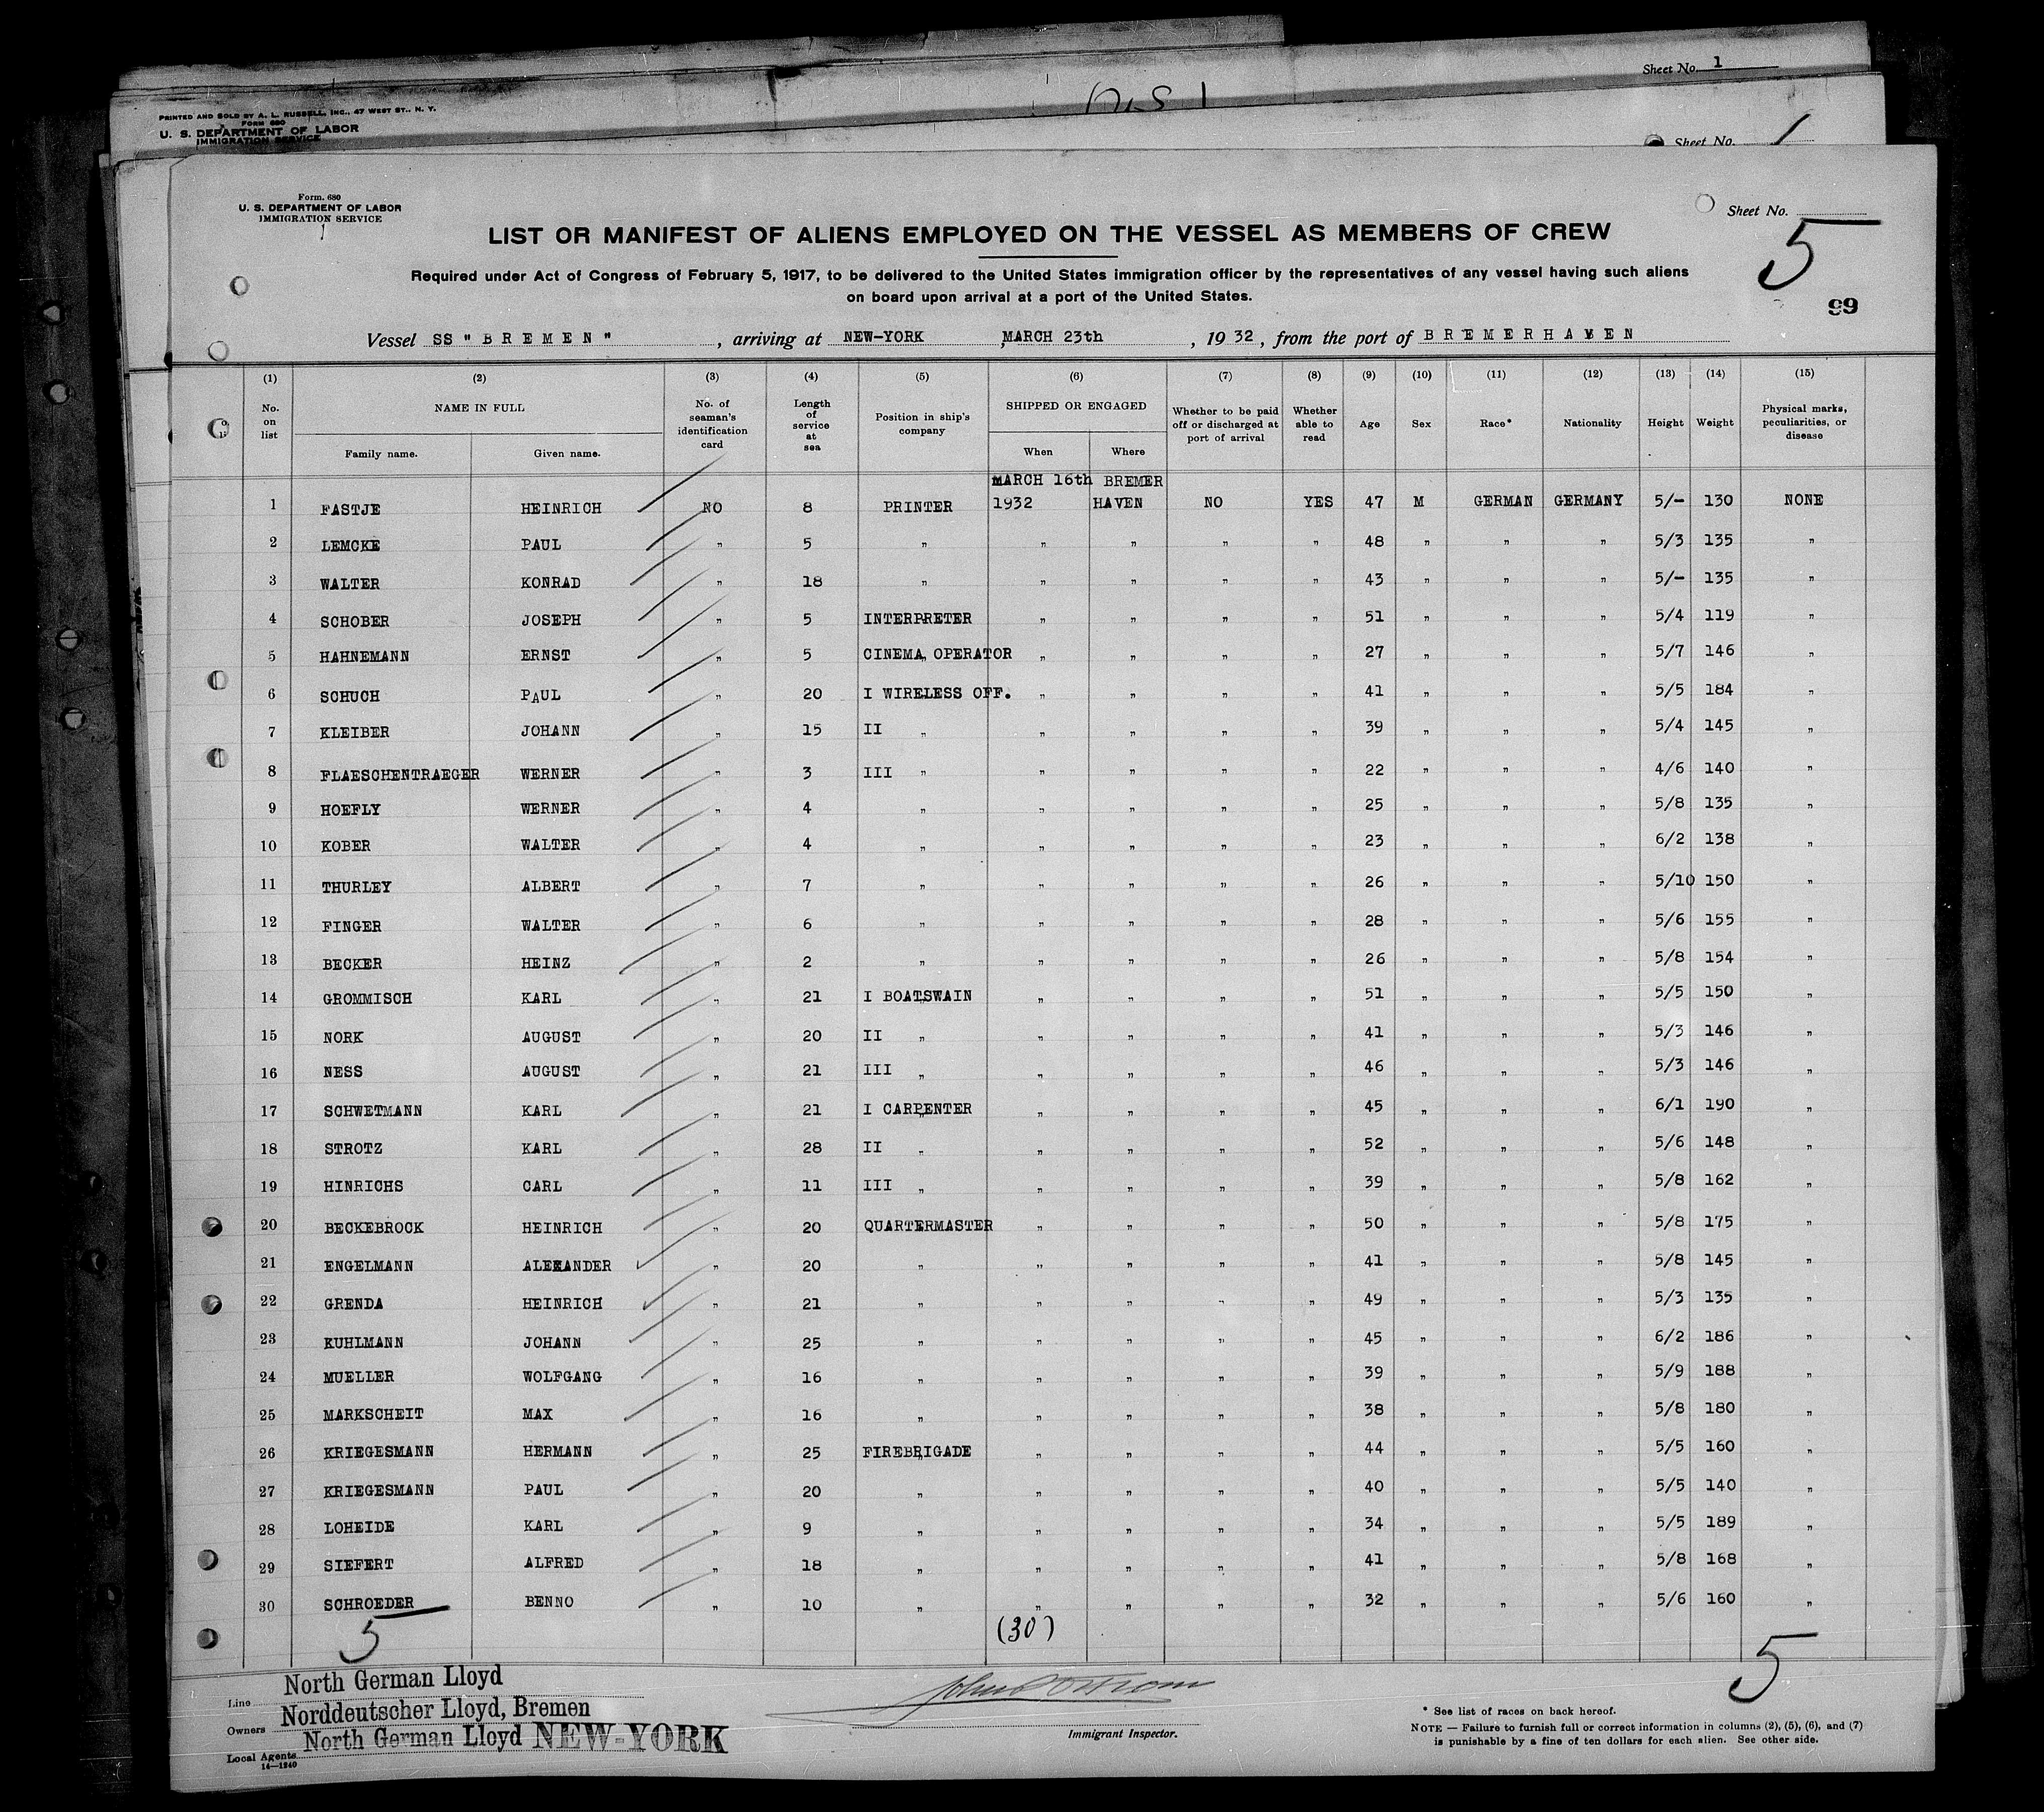 Sheet No. 1
PRINTED AND SOLD BY A. L. RUSSELL, INC., 47 WEST ST., N. Y.
FORM 680
U. S. DEPARTMENT OF LABOR
IMMIGRATION SERVICE
Sheet No. 1
Form. 680
U. S. DEPARTMENT OF LABOR
IMMIGRATION SERVICE
Sheet No. 5
LIST OR MANIFEST OF ALIENS EMPLOYED ON THE VESSEL AS MEMBERS OF CREW
Required under Act of Congress of February 5, 1917, to be delivered to the United States immigration officer by the representatives of any vessel having such aliens
on board upon arrival at a port of the United States.
99
Vessel SS "BREMEN", arriving at NEW-YORK, MARCH 23th, 1932, from the port of BREMERHAVEN
(1) (2) (3) (4) (5) (6) (7) (8) (9) (10) (11) (12) (13) (14) (15)
No. on list NAME IN FULL Family name. Given name. No. of seaman's identification card Length of service at sea Position in ship's company SHIPPED OR ENGAGED When Where Whether to be paid off or discharged at port of arrival Whether able to read Age Sex Race* Nationality Height Weight Physical marks, peculiarities, or disease
MARCH 16th BREMER
1 FASTJE HEINRICH NO 8 PRINTER 1932 HAVEN NO YES 47 M GERMAN GERMANY 5/- 130 NONE
2 LEMCKE PAUL " 5 " " " " " 48 " " " 5/3 135 "
3 WALTER KONRAD " 18 " " " " " 43 " " " 5/- 135 "
4 SCHOBER JOSEPH " 5 INTERPRETER " " " " 51 " " " 5/4 119 "
5 HAHNEMANN ERNST " 5 CINEMA OPERATOR " " " " 27 " " " 5/7 146 "
6 SCHUCH PAUL " 20 I WIRELESS OFF. " " " " 41 " " " 5/5 184 "
7 KLEIBER JOHANN " 15 II " " " " " 39 " " " 5/4 145 "
8 FLAESCHENTRAEGER WERNER " 3 III " " " " " 22 " " " 4/6 140 "
9 HOEFLY WERNER " 4 " " " " " 25 " " " 5/8 135 "
10 KOBER WALTER " 4 " " " " " 23 " " " 6/2 138 "
11 THURLEY ALBERT " 7 " " " " " 26 " " " 5/10 150 "
12 FINGER WALTER " 6 " " " " " 28 " " " 5/6 155 "
13 BECKER HEINZ " 2 " " " " " 26 " " " 5/8 154 "
14 GROMMISCH KARL " 21 I BOATSWAIN " " " " 51 " " " 5/5 150 "
15 NORK AUGUST " 20 II " " " " " 41 " " " 5/3 146 "
16 NESS AUGUST " 21 III " " " " " 46 " " " 5/3 146 "
17 SCHWETMANN KARL " 21 I CARPENTER " " " " 45 " " " 6/1 190 "
18 STROTZ KARL " 28 II " " " " " 52 " " " 5/6 148 "
19 HINRICHS CARL " 11 III " " " " " 39 " " " 5/8 162 "
20 BECKEBROCK HEINRICH " 20 QUARTERMASTER " " " " 50 " " " 5/8 175 "
21 ENGELMANN ALEXANDER " 20 " " " " " 41 " " " 5/8 145 "
22 GRENDA HEINRICH " 21 " " " " " 49 " " " 5/3 135 "
23 KUHLMANN JOHANN " 25 " " " " " 45 " " " 6/2 186 "
24 MUELLER WOLFGANG " 16 " " " " " 39 " " " 5/9 188 "
25 MARKSCHEIT MAX " 16 " " " " " 38 " " " 5/8 180 "
26 KRIEGESMANN HERMANN " 25 FIREBRIGADE " " " " 44 " " " 5/5 160 "
27 KRIEGESMANN PAUL " 20 " " " " " 40 " " " 5/5 140 "
28 LOHEIDE KARL " 9 " " " " " 34 " " " 5/5 189 "
29 SIEFERT ALFRED " 18 " " " " " 41 " " " 5/8 168 "
30 SCHROEDER BENNO " 10 " " " " " 32 " " " 5/6 160 "
5 (30) 5
Line North German Lloyd
Owners Norddeutscher Lloyd, Bremen
Local Agents North German Lloyd NEW-YORK
14—1240
Immigrant Inspector.
* See list of races on back hereof.
NOTE — Failure to furnish full or correct information in columns (2), (5), (6), and (7)
is punishable by a fine of ten dollars for each alien. See other side.